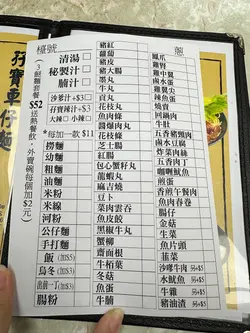 孖寶車仔麵
(3餸麵套餐 $52 送熱餐飲，外賣碗每個加$2元)
檯號
清湯
秘製汁
腩汁
沙爹汁+$3
孖寶辣汁+$3
大辣 小辣
*每加一款 $11
撈麵
幼麵
粗麵
油麵
米粉
米線
河粉
公仔麵
手打麵
飯 (加$5)
烏冬 (加$3)
出前一丁(加$3)
腸粉
豬紅
蘿蔔
豬皮
豬大腸
牛丸
貢丸
花枝丸
魚肉條
醬爆肉丸
花枝條
芝士腸
紅腸
包心墨魚丸
龍蝦丸
麻吉燒
豆卜
魚皮餃
黑椒牛丸
蟹柳
齋面根
牛柏葉
冬菇
魚旦
牛腩
鳳爪
雞腎
雞中翼
鹵水雞尖
辣魚蛋
燒賣
豬頸肉
鍋貼
牛筋
五香豬頸肉
鹵水豆腐
炸菜肉絲
五香肉丁
咖喱魷魚
煎蛋
香煎午餐肉
魚肉春卷
腸仔
金菇
生菜
魚片頭
韮菜
沙嗲牛肉 另+$5
水魷魚 另+$5
牛雜 另+$5
豬油渣 另+$5